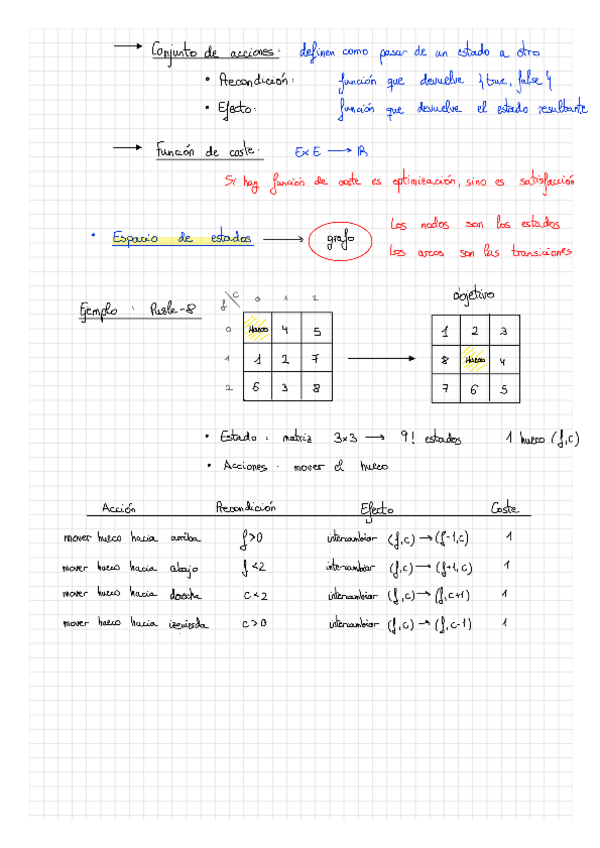 → Conjunto de acciones: definen como pasar de un estado a otro
• Precondición: función que devuelve {true, false}
• Efecto: función que devuelve el estado resultante
→ Función de coste: E x E → ℝ
Si hay función de coste es optimización, sino es satisfacción
• Espacio de estados → grafo
Los nodos son los estados
Los arcos son las transiciones
Ejemplo: Puzle-8
f \ c 0 1 2
0 Hueco 4 5
1 1 2 7
2 6 3 8
→
objetivo
1 2 3
8 Hueco 4
7 6 5
• Estado: matriz 3x3 → 9! estados 1 hueco (f,c)
• Acciones: mover el hueco
Acción Precondición Efecto Coste
mover hueco hacia arriba f>0 intercambiar (f,c) → (f-1,c) 1
mover hueco hacia abajo f<2 intercambiar (f,c) → (f+1,c) 1
mover hueco hacia derecha c<2 intercambiar (f,c) → (f,c+1) 1
mover hueco hacia izquierda c>0 intercambiar (f,c) → (f,c-1) 1